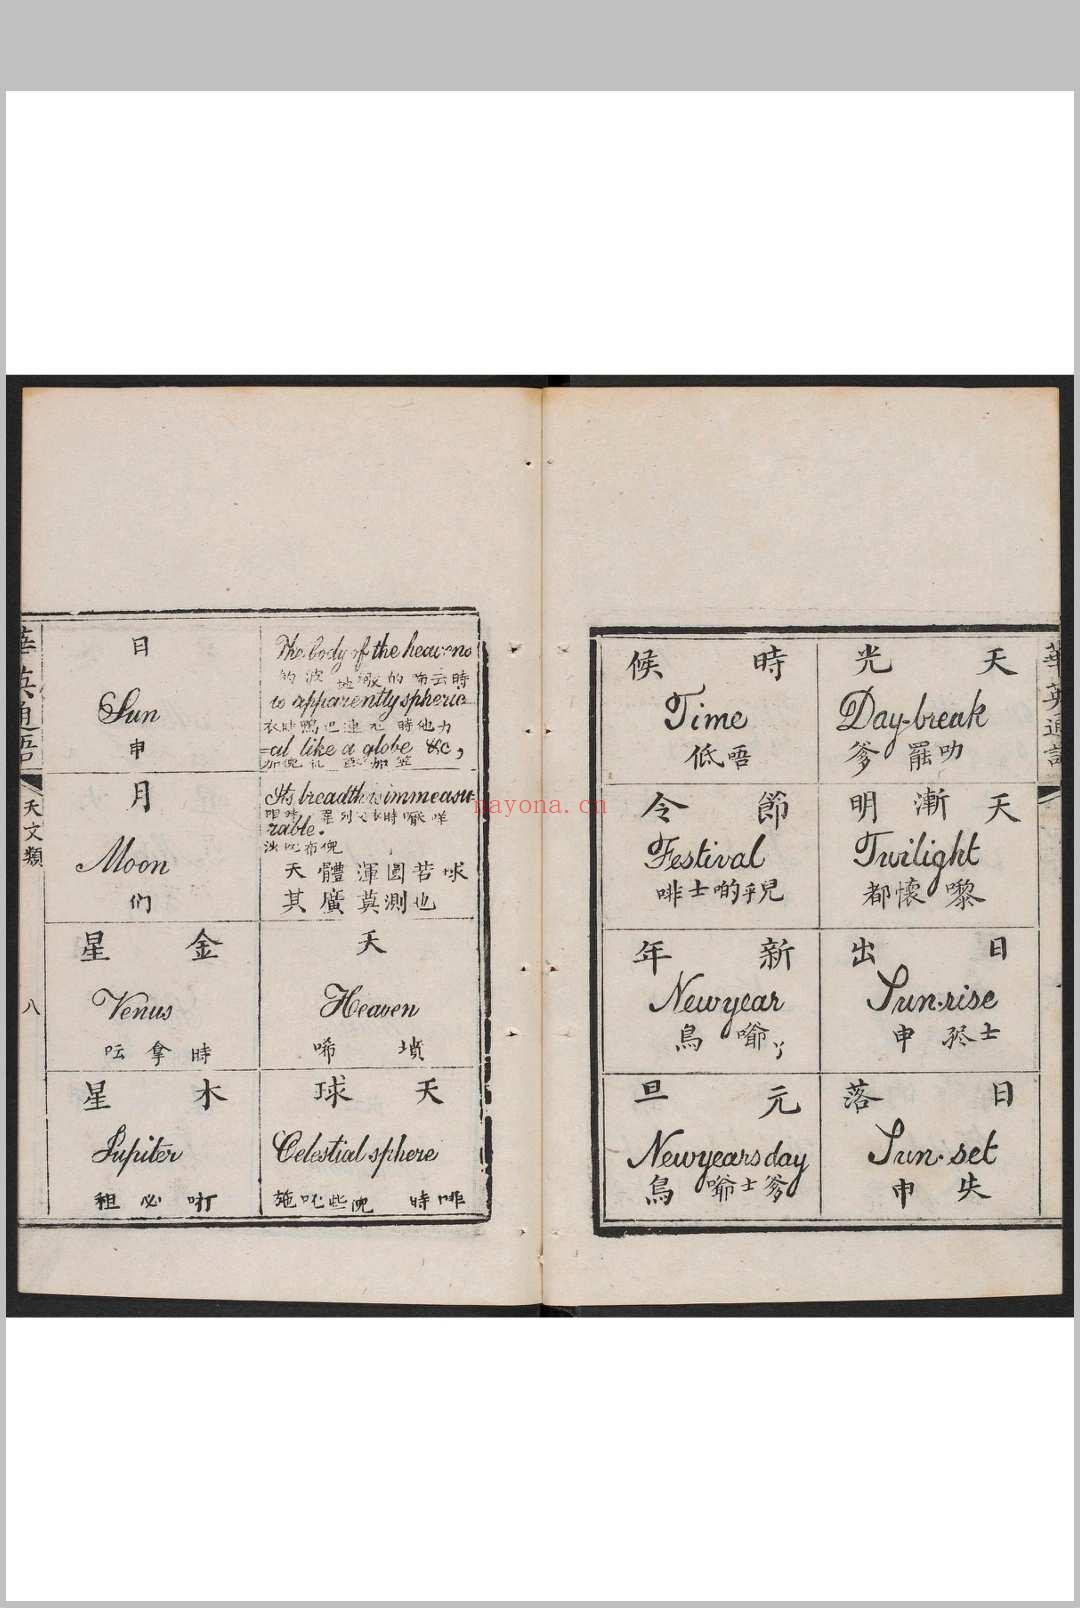 天光
Day-break
爹罷叻
時候
Time
低唔
天漸明
Twilight
都懷嚟
節令
Festival
啡士啲
日出
Sun-rise
申 士
新年
New year
鳥 爺丫
日落
Sun-set
申失
元旦
New years day
鳥 爺士爹
華英通語
The body of the heavens
is apparently spheric
=al like a globe &c,
Its breadth is immeasu-
rable.
天體渾圓若球
其廣莫測也
天
Heaven
唏 墳
天球
Celestial sphere
施吡些 時啡
日
Sun
申
月
Moon
们
金星
Venus
呍拿時
木星
Jupiter
租必叮
華英通語
天文類
八
nayona.cn